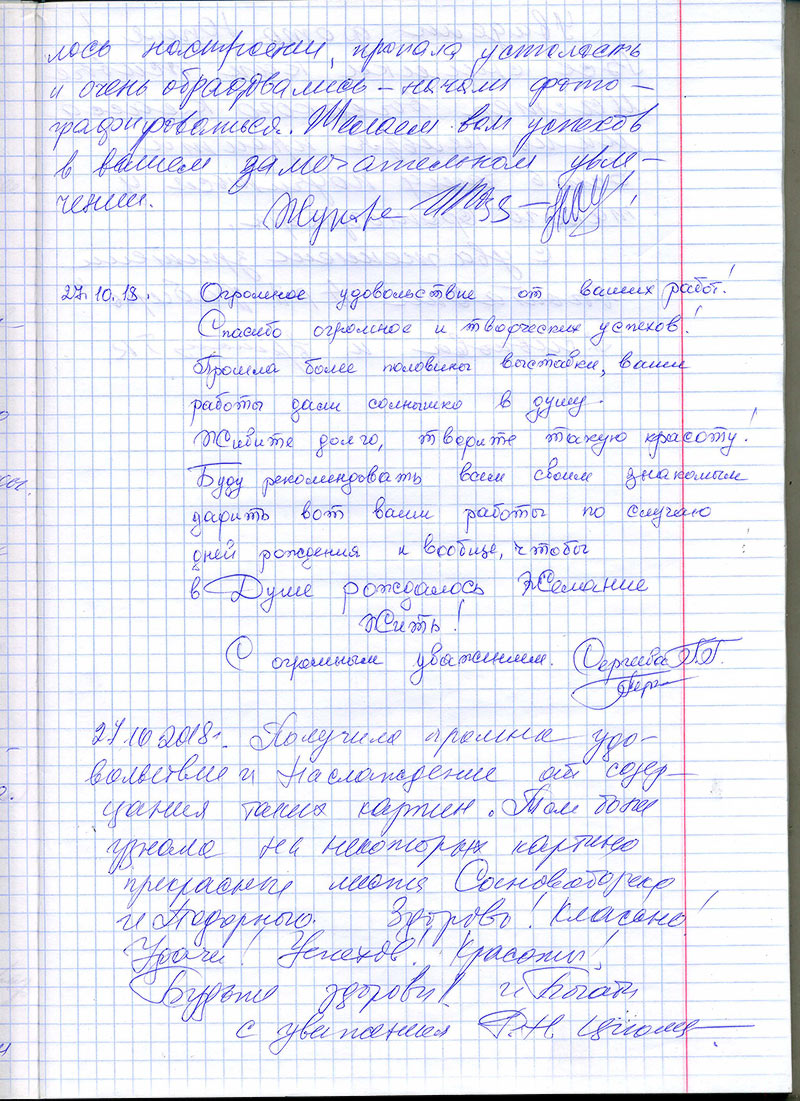 лось настроении, пропала усталость
и очень обрадовались – начали фото–
графироваться. Желаем вам успехов
в вашем замечательном увле–
чении.
27.10.18. Огромное удовольствие от ваших работ!
Спасибо огромное и творческих успехов!
Прошла более половины выставки, ваши
работы дали солнышко в душу.
Живите долго, творите такую красоту!
Буду рекомендовать всем своим знакомым
дарить вот ваши работы по случаю
дней рождения и вообще, чтобы
в Душе рождалось Желание
Жить!
С огромным уважением. Сергеева Т.Т.
27.10.2018г. Получила громная удо–
вольствие и Наслаждение от созер–
цания таких картин. Там более
узнала на некоторых картино
прекрасные места
и Подорного. Здорово! Класено!
Удачи! Успехов! Красоты!
Будьте здоровы! и Богаты
с уважения Р.Н.